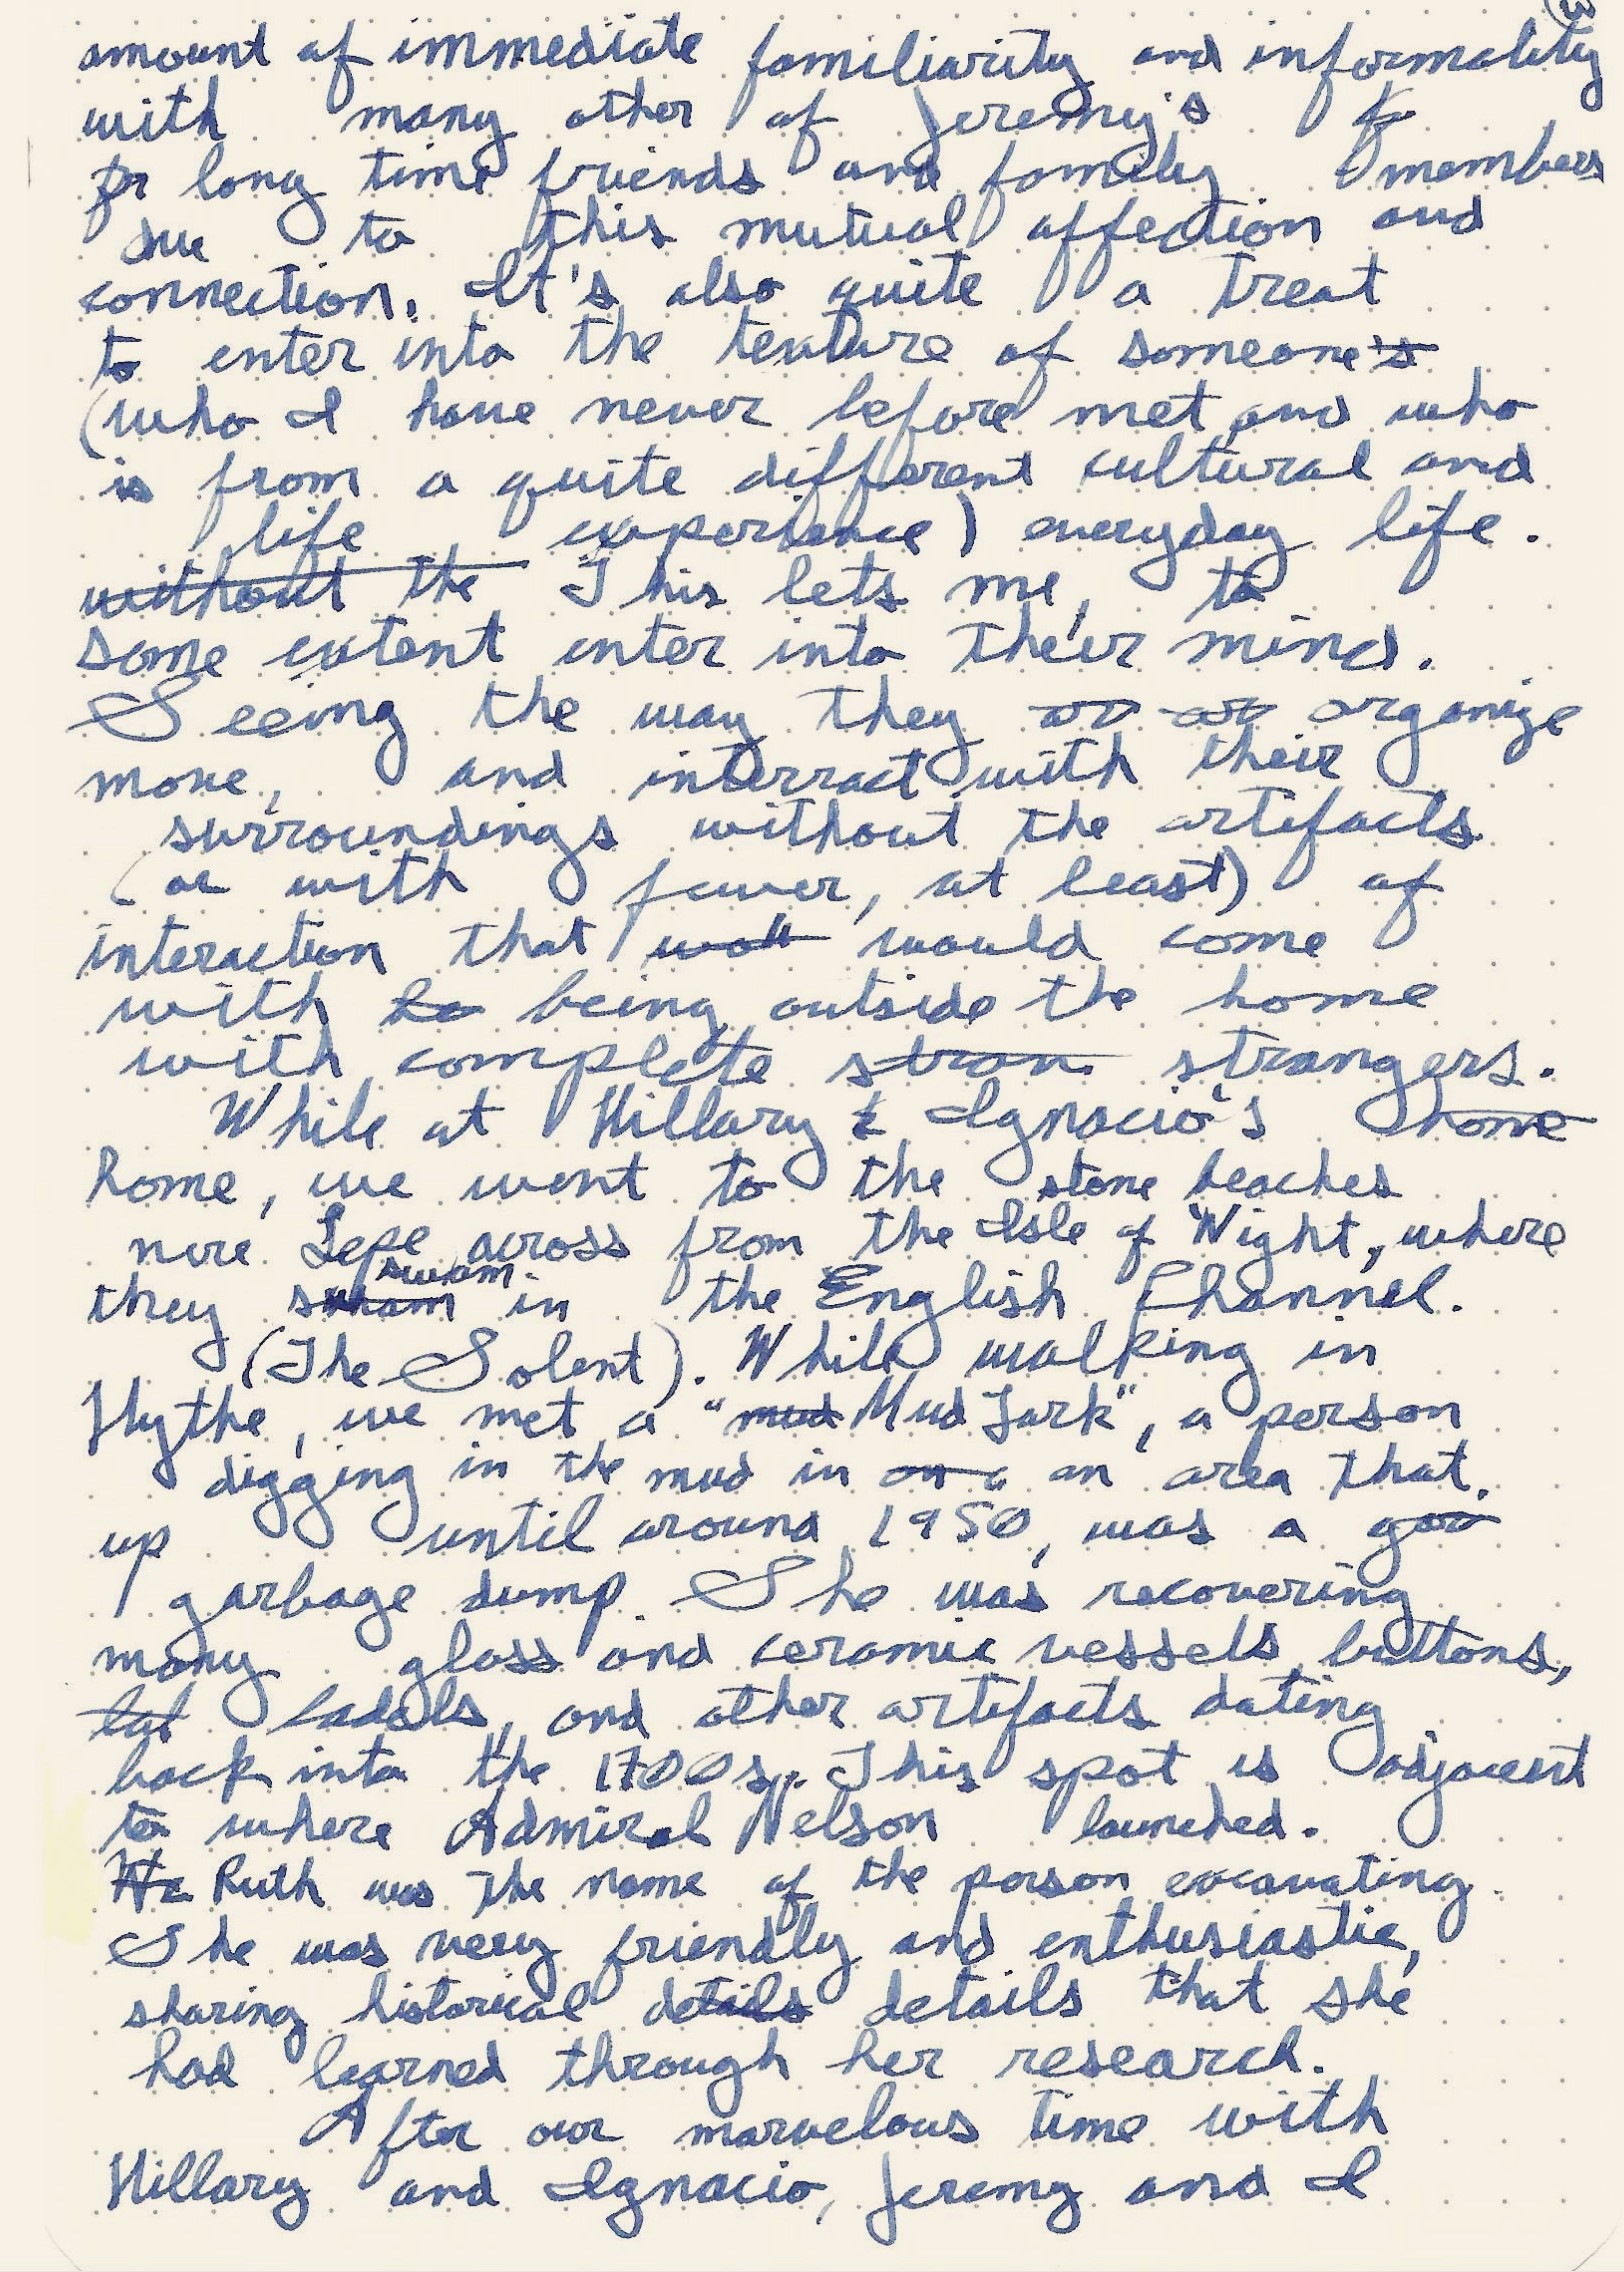 3
amount of immediate familiarity and informality
with many other of Jeremy's
long time friends and family members
due to this mutual affection and
connection. It's also quite a treat
to enter into the texture of someone's
(who I have never before met and who
is from a quite different cultural and
life experience) everyday life.
without the This lets me, to
some extent enter into their mind.
Seeing the way they or or organize
move, and interract with their
surroundings without the artifacts
(or with fewer, at least) of
interaction that woll would come
with ho being outside the home
with complete stran strangers.
While at Hillary & Ignacio's home
home, we went to the stone beaches
nere Lepe across from the Isle of Wight, where
swam
they in the English Channel.
(The Solent). While walking in
Hythe, we met a "mud Mud Lark", a person
digging in the mud in on a an area that,
up until around 1950, was a gar
garbage dump. She was recovering
many glass and ceramic vessels, buttons,
lad ladels, and other artifacts dating
back into the 1700s. This spot is adjacent
to where Admiral Nelson launched.
He Ruth was the name of the person excavating.
She was very friendly and enthusiastic,
sharing historical details details that she
had learned through her research.
After our marvelous time with
Hillary and Ignacio, Jeremy and I